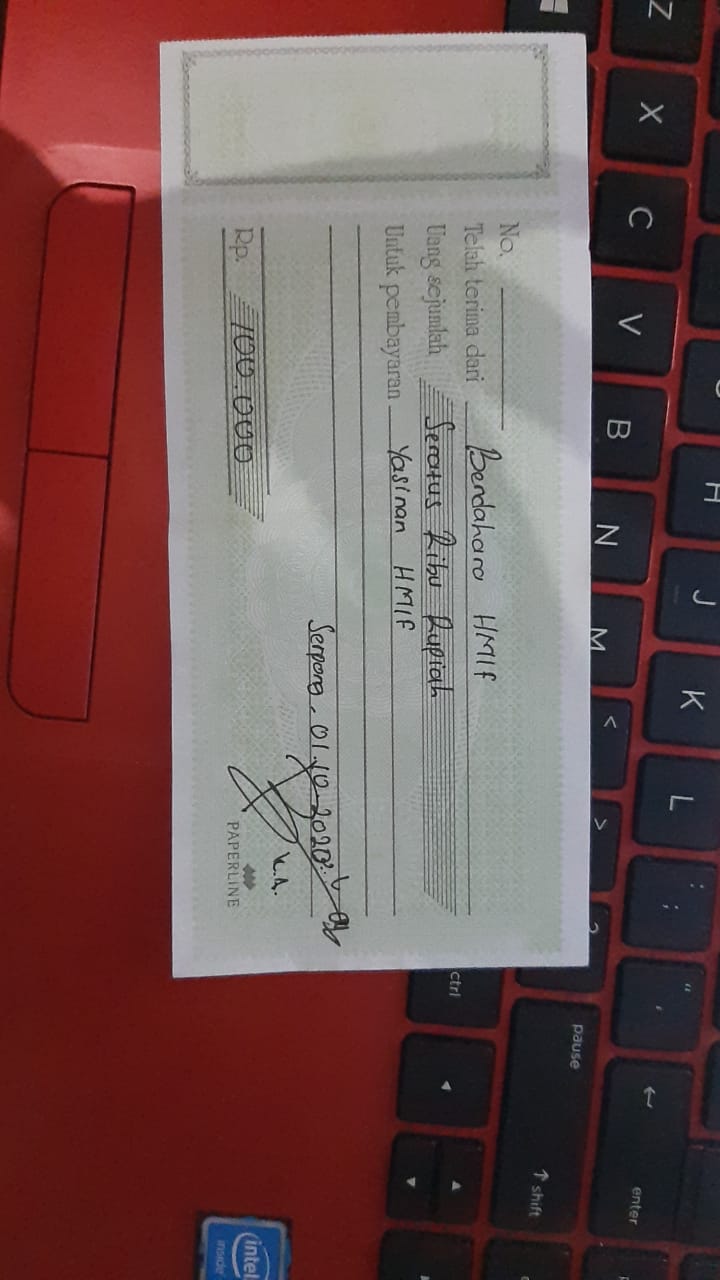 No.
Telah terima dari Bendahara HMIF
Uang sejumlah Seratus Ribu Rupiah
Untuk pembayaran Yasinan HMIF
Serpong, 01-10-2020
Rp. 100.000
PAPERLINE
Z X C V B N M < > ?
H J K L : ; " '
ctrl
pause
↑ shift
enter
intel
inside